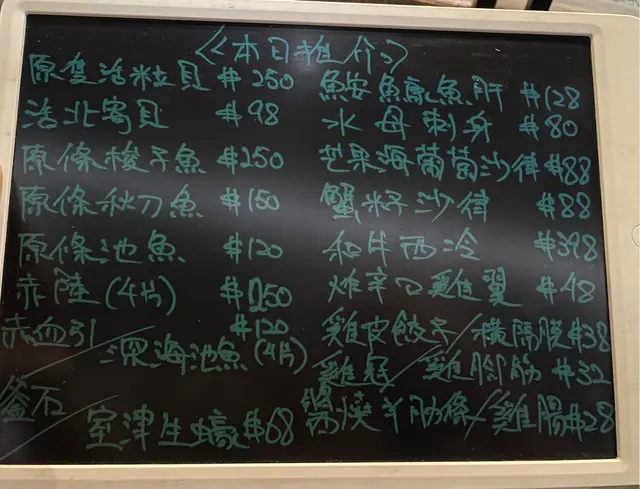 《本日推介》
原隻活粒貝 $250
活北寄貝 $98
原條梭子魚 $250
原條秋刀魚 $150
原條池魚 $120
赤陸(4片) $250
赤血引/深海池魚(4片) $120
釜石/室津生蠔 $68
鮟鱇魚肝 $128
水母刺身 $80
芒果海葡萄沙律 $88
蟹籽沙律 $88
和牛西冷 $398
炸辛口雞翼 $48
雞皮餃子/橫隔膜 $38
雞冠/雞腳筋 $32
羊肋條/雞腸 $28